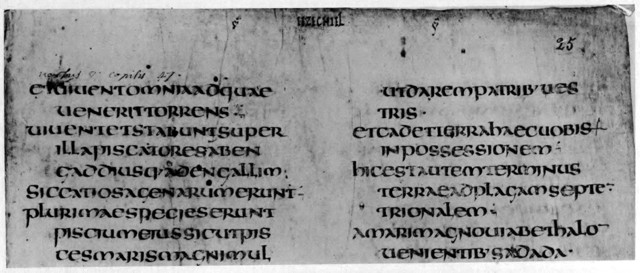 25
capitis 47.
ETUIUENTOMNIAADQUAE
UENERITTORRENS·
UIUENTETSTABUNTSUPER
ILLAPISCATORESABEN
GADDIUSQ·ADENGALLIM·
SICCATIOSAGENARUMERUNT·
PLURIMAESPECIESERUNT
PISCIUMEIUSSICUTPIS
CESMARISMAGNIMUL
UTDAREMPATRIBUUES
TRIS·
ETCADETTERRAHAECUOBIS
INPOSSESSIONEM·
HICESTAUTEMTERMINUS
TERRAEADPLAGAMSEPTE
TRIONALEM·
AMARIMAGNOUIABETHALO
UENIENTIB·SADADA·